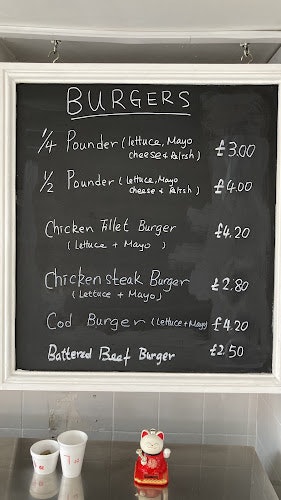 BURGERS
1/4 Pounder (lettuce, Mayo
cheese & Relish) £3.00
1/2 Pounder (lettuce, Mayo
cheese & Relish) £4.00
Chicken Fillet Burger £4.20
(Lettuce + Mayo )
Chicken steak Burger £2.80
(Lettuce + Mayo)
Cod Burger (lettuce+Mayo) £4.20
Battered Beef Burger £2.50